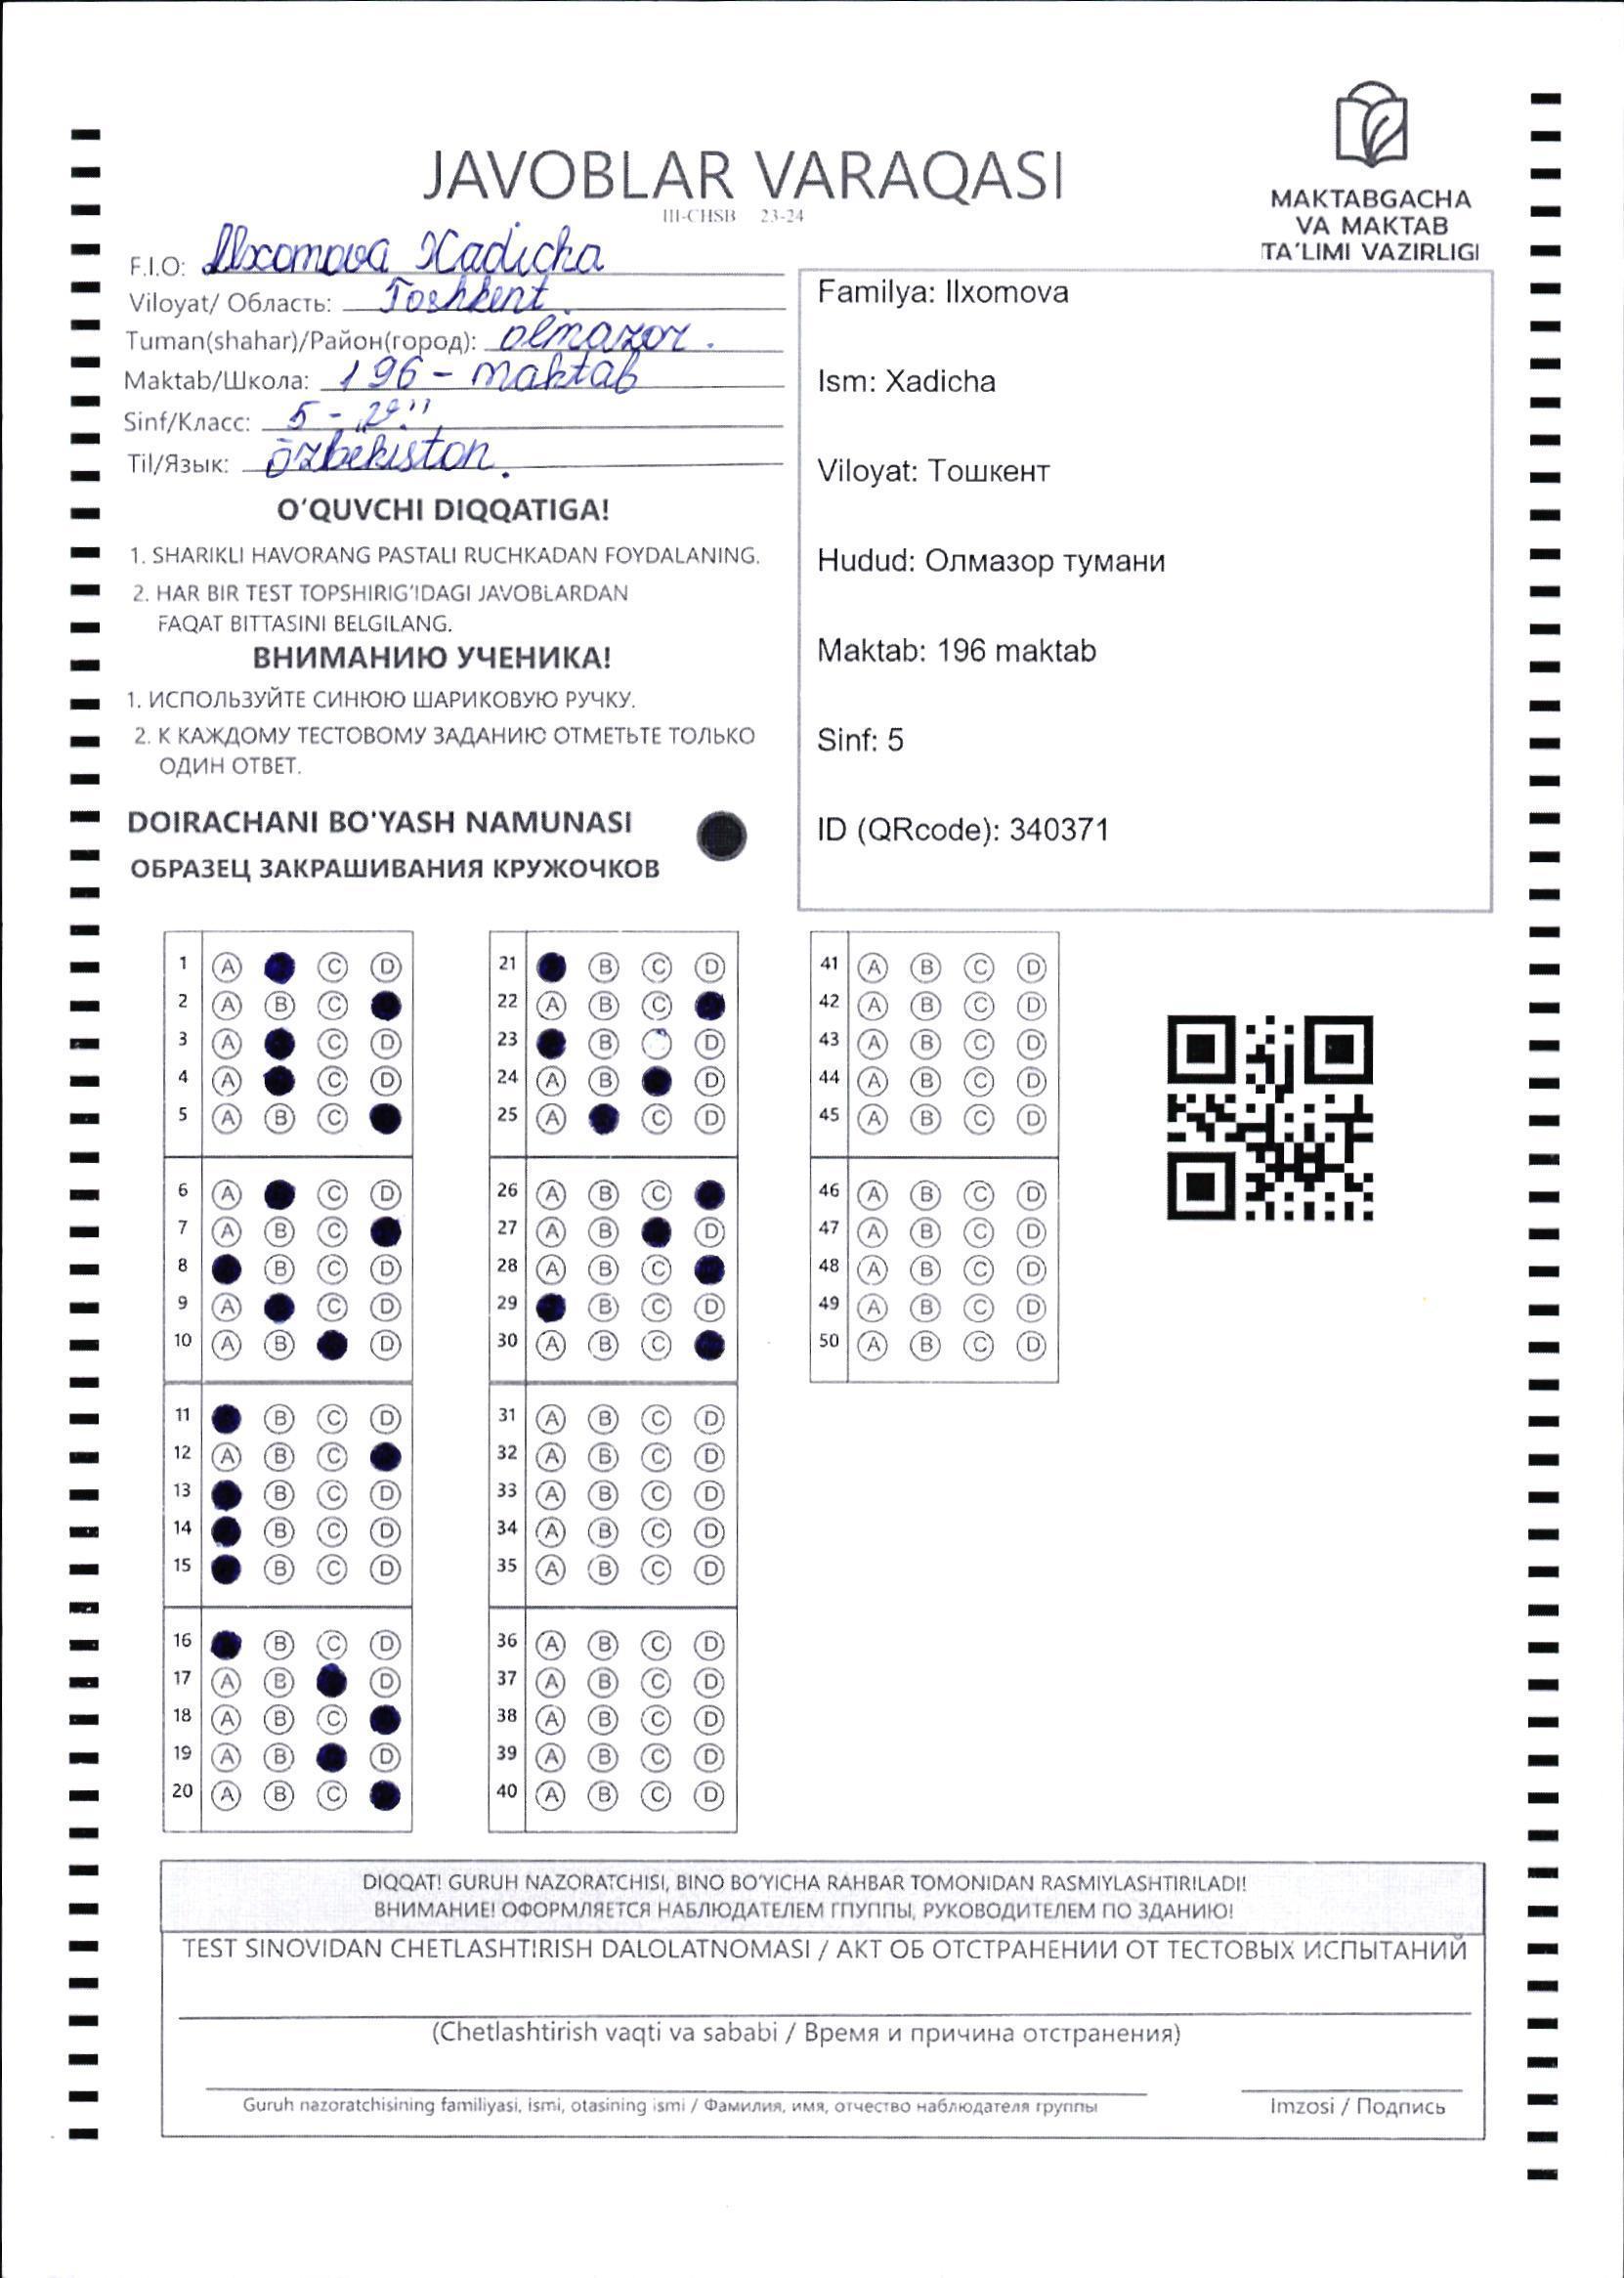 JAVOBLAR VARAQASI
III-CHSB 23-24
MAKTABGACHA
VA MAKTAB
TA'LIMI VAZIRLIGI
F.I.O: Ilxomova Xadicha
Viloyat/ Область: Toshkent.
Tuman(shahar)/Район(город): Olmazor.
Maktab/Школа: 196 - maktab
Sinf/Класс: 5 -
Til/Язык: Ozbekiston.
O'QUVCHI DIQQATIGA!
1. SHARIKLI HAVORANG PASTALI RUCHKADAN FOYDALANING.
2. HAR BIR TEST TOPSHIRIG'IDAGI JAVOBLARDAN
FAQAT BITTASINI BELGILANG.
ВНИМАНИЮ УЧЕНИКА!
1. ИСПОЛЬЗУЙТЕ СИНЮЮ ШАРИКОВУЮ РУЧКУ.
2. К КАЖДОМУ ТЕСТОВОМУ ЗАДАНИЮ ОТМЕТЬТЕ ТОЛЬКО
ОДИН ОТВЕТ.
DOIRACHANI BO'YASH NAMUNASI
ОБРАЗЕЦ ЗАКРАШИВАНИЯ КРУЖОЧКОВ
Familya: Ilxomova
Ism: Xadicha
Viloyat: Тошкент
Hudud: Олмазор тумани
Maktab: 196 maktab
Sinf: 5
ID (QRcode): 340371
1 A C D
2 A B C
3 A C D
4 A C D
5 A B C
6 A C D
7 A B C
8 B C D
9 A C D
10 A B D
11 B C D
12 A B C
13 B C D
14 B C D
15 B C D
16 B C D
17 A B D
18 A B C
19 A B D
20 A B C
21 B C D
22 A B C
23 B D
24 A B D
25 A C D
26 A B C
27 A B D
28 A B C
29 B C D
30 A B C
31 A B C D
32 A B C D
33 A B C D
34 A B C D
35 A B C D
36 A B C D
37 A B C D
38 A B C D
39 A B C D
40 A B C D
41 A B C D
42 A B C D
43 A B C D
44 A B C D
45 A B C D
46 A B C D
47 A B C D
48 A B C D
49 A B C D
50 A B C D
DIQQAT! GURUH NAZORATCHISI, BINO BO'YICHA RAHBAR TOMONIDAN RASMIYLASHTIRILADI!
ВНИМАНИЕ! ОФОРМЛЯЕТСЯ НАБЛЮДАТЕЛЕМ ГПУППЫ, РУКОВОДИТЕЛЕМ ПО ЗДАНИЮ!
TEST SINOVIDAN CHETLASHTIRISH DALOLATNOMASI / АКТ ОБ ОТСТРАНЕНИИ ОТ ТЕСТОВЫХ ИСПЫТАНИЙ
(Chetlashtirish vaqti va sababi / Время и причина отстранения)
Guruh nazoratchisining familiyasi, ismi, otasining ismi / Фамилия, имя, отчество наблюдателя группы
Imzosi / Подпись